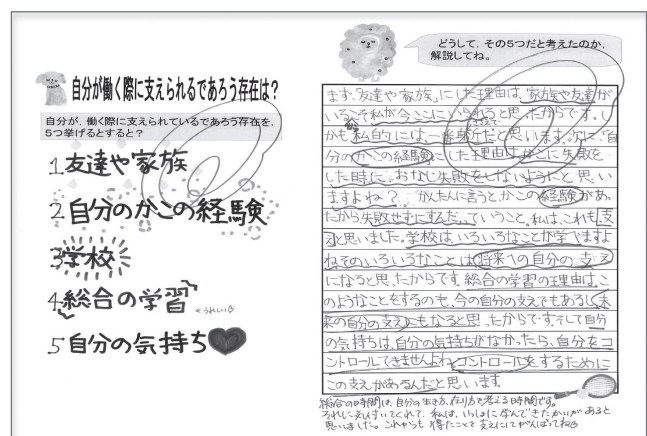 自分が働く際に支えられるであろう存在は?
自分が、働く際に支えられているであろう存在を、
5つ挙げるとすると?
1.友達や家族
2.自分のかこの経験
3.学校
4.総合の学習
←うれしい
5.自分の気持ち
どうして、その5つだと考えたのか、
解説してね。
まず、「友達や家族」にした理由は、家族や友達が
いるこそ私が今ここにいられると思ったからです。し
かも私的には、一番身近だと思います。次に、「自
分のかこの経験」にした理由は、かこに失敗を
した時に、おなじ失敗をしないようにと思い
ますよね?かんたんに言うと、かこの経験があっ
たから失敗せずにすんだ。っていうこと、私は、これも支
えと思いました。学校は、いろいろなことが学べますよ
ねそのいろいろなことは将来への自分の支え
になると思ったからです。総合の学習の理由は、こ
のようなことをするのも、今の自分の支えでもあるし、未
来の自分の支えにもなると思ったからです。そして自分
の気持は、自分の気持ちがなかったら、自分をコ
ントロールできませんよね。コントロールをするために
この支えがあるんだと思います
総合の時間は、自分の生き方、在り方を考える時間です。
それに気付いてくれて、私は、いっしょに学んできたかいがあると
思いました。これからも得たことを支えにしてがんばってね